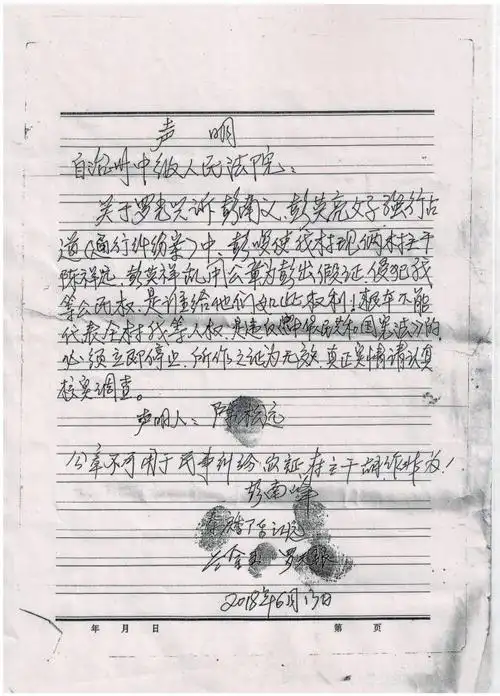 声 明
自治州中级人民法院:
关于罗光兴诉彭南义、彭英亮父子强行占
道《通行纠纷案》中,彭唆使我村现两村主干
陈祥远、彭英祥乱用公章为彭出假证,侵犯我
等公民权,是谁给他们如此权利!根本不能
代表全村我等人权,是违反《中 和国宪法》的,
必须立即停止,所作之证为无效,真正实情请认真
核实调查。
声明人:陈 远
公章不可用于民事纠纷 证,村主干胡作非为!
彭南峰
罗
2018年6月13日
年 月 日
第 页